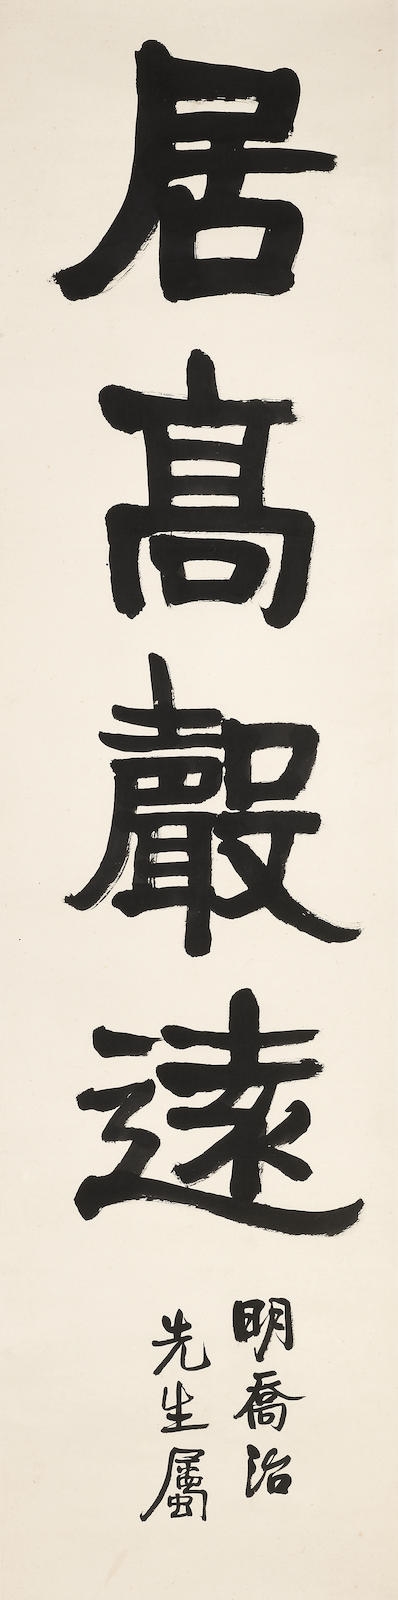 居高聲遠
明喬治
先生屬